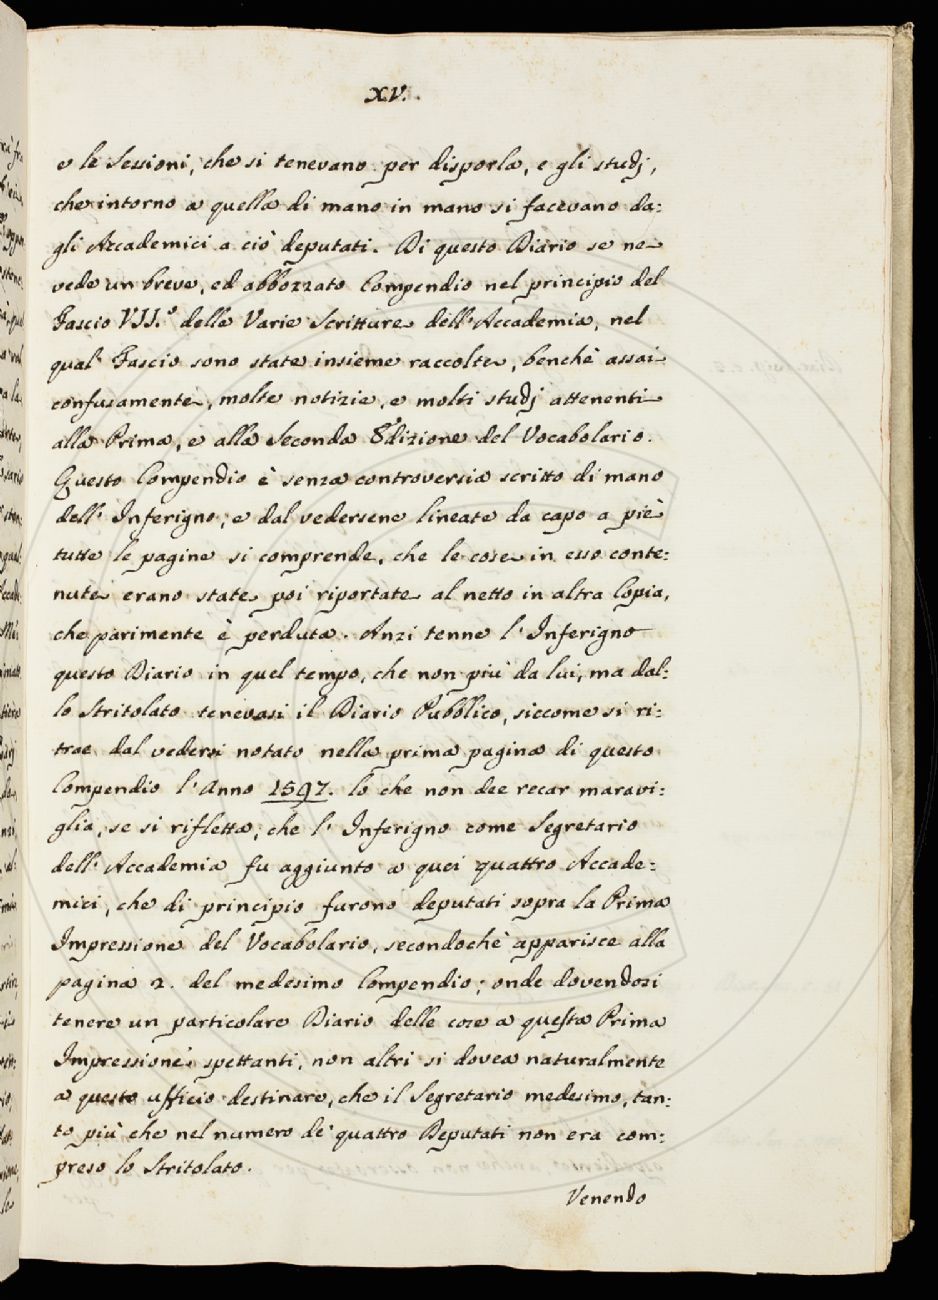 XV.
e le Sessioni, che si tenevano per disporla, e gli studj,
che intorno a quella di mano in mano si facevano da:
gli Accademici a ciò deputati. Di questo Diario se ne
vede un breve, ed abbozzato Compendio nel principio del
Fascio VII.° delle Varie Scritture dell'Accademia, nel
qual Fascio sono state insieme raccolte, benchè assai
confusamente, molte notizie, e molti studj attenenti
alla Prima, e alla Seconda Edizione del Vocabolario.
Questo Compendio è senza controversia scritto di mano
dell'Inferigno; e dal vedersene lineate da capo a piè
tutte le pagine si comprende, che le cose in esso conte:
nute erano state poi riportate al netto in altra Copia,
che parimente è perduta. Anzi tenne l'Inferigno
questo Diario in quel tempo, che non più da lui, ma dal:
lo Stritolato tenevasi il Diario Pubblico, siccome si ri:
trae dal vedersi notato nella prima pagina di questo
Compendio l'Anno 1597. lo che non dee recar maravi:
glia, se si rifletta, che l'Inferigno come Segretario
dell'Accademia fu aggiunto a quei quattro Accade:
mici, che di principio furono deputati sopra la Prima
Impressione del Vocabolario, secondochè apparisce alla
pagina 2. del medesimo Compendio; onde dovendosi
tenere un particolare Diario delle cose a questa Prima
Impressione spettanti, non altri si dovea naturalmente
a questo ufficio destinare, che il Segretario medesimo, tan:
to più che nel numero de' quattro Deputati non era com:
preso lo Stritolato.
Venendo